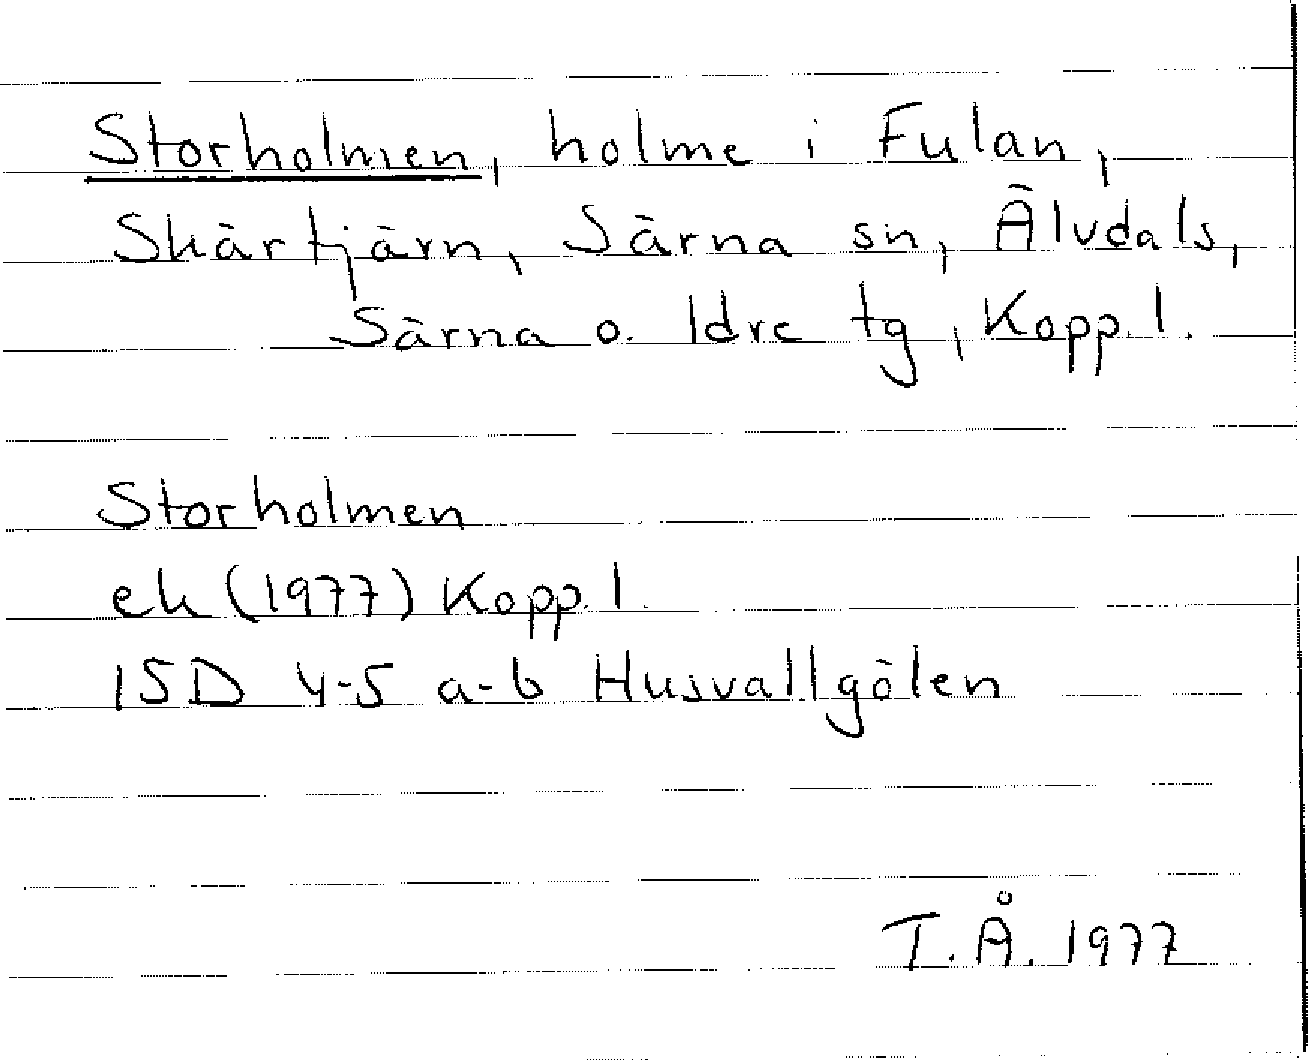 Storholmen, holme i Fulan,
Skärtjärn, Särna sn, Älvdals,
Särna o. Idre tg, Kopp. l.
Storholmen
ek (1977) Kopp. l.
15D 4-5 a-b Husvallgölen
T.Å. 1977